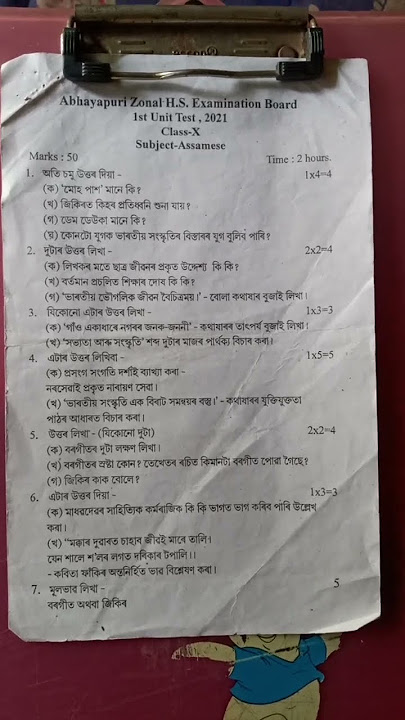 Abhayapuri Zonal H.S. Examination Board
1st Unit Test , 2021
Class-X
Subject-Assamese
Marks : 50 Time : 2 hours.
1. অতি চমু উত্তৰ দিয়া - 1x4=4
(ক) ‘মোহ পাশ’ মানে কি?
(খ) জিকিৰত কিহৰ প্ৰতিধ্বনি শুনা যায়?
(গ) ডেম ডেউকা মানে কি?
(ঘ) কোনটো যুগক ভাৰতীয় সংস্কৃতিৰ বিস্তাৰৰ যুগ বুলিব পাৰি?
2. দুটাৰ উত্তৰ লিখা - 2x2=4
(ক) লিখকৰ মতে ছাত্ৰ জীৱনৰ প্ৰকৃত উদ্দেশ্য কি কি?
(খ) বৰ্তমান প্ৰচলিত শিক্ষাৰ দোষ কি কি?
(গ) ‘ভাৰতীয় ভৌগলিক জীৱন বৈচিত্ৰময়।’ - বোলা কথাষাৰ বুজাই লিখা।
3. যিকোনো এটাৰ উত্তৰ লিখা - 1x3=3
(ক) ‘গাঁও একাধাৰে নগৰৰ জনক-জননী’ - কথাষাৰৰ তাৎপৰ্য বুজাই লিখা।
(খ) ‘সভ্যতা আৰু সংস্কৃতি’ শব্দ দুটাৰ মাজৰ পাৰ্থক্য বিচাৰ কৰা।
4. এটাৰ উত্তৰ লিখিবা - 1x5=5
(ক) প্ৰসংগ সংগতি দৰ্শাই ব্যাখ্যা কৰা -
নৰসেৱাই প্ৰকৃত নাৰায়ণ সেৱা।
(খ) ‘ভাৰতীয় সংস্কৃতি এক বিৰাট সমন্বয়ৰ বস্তু।’ - কথাষাৰৰ যুক্তিযুক্ততা
পাঠৰ আধাৰত বিচাৰ কৰা।
5. উত্তৰ লিখা - (যিকোনো দুটা) 2x2=4
(ক) বৰগীতৰ দুটা লক্ষণ লিখা।
(খ) বৰগীতৰ স্ৰষ্টা কোন? তেখেতৰ ৰচিত কিমানটা বৰগীত পোৱা গৈছে?
(গ) জিকিৰ কাক বোলে?
6. এটাৰ উত্তৰ দিয়া - 1x3=3
(ক) মাধৱদেৱৰ সাহিত্যিক কৰ্মৰাজিক কি কি ভাগত ভাগ কৰিব পাৰি উল্লেখ
কৰা।
(খ) “মক্কাৰ দুৱাৰত চাহাব জীৱই মাৰে তালি।
যেন শালে শ’লৰ লগত দৰিকাৰ টপালি।।
- কবিতা ফাঁকিৰ অন্তৰ্নিৰ্হিত ভাৱ বিশ্লেষণ কৰা।
7. মূলভাৱ লিখা - 5
বৰগীত অথবা জিকিৰ